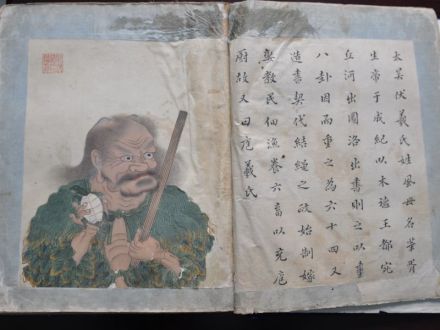 太昊伏羲氏姓風母名華胥
生帝于成紀以木德王都宛
丘河出圖洛出書則之以畫
八卦因而重之為六十四又
造書契代結繩之政始制嫁
娶教民佃漁養六畜以充庖
厨故又曰庖羲氏